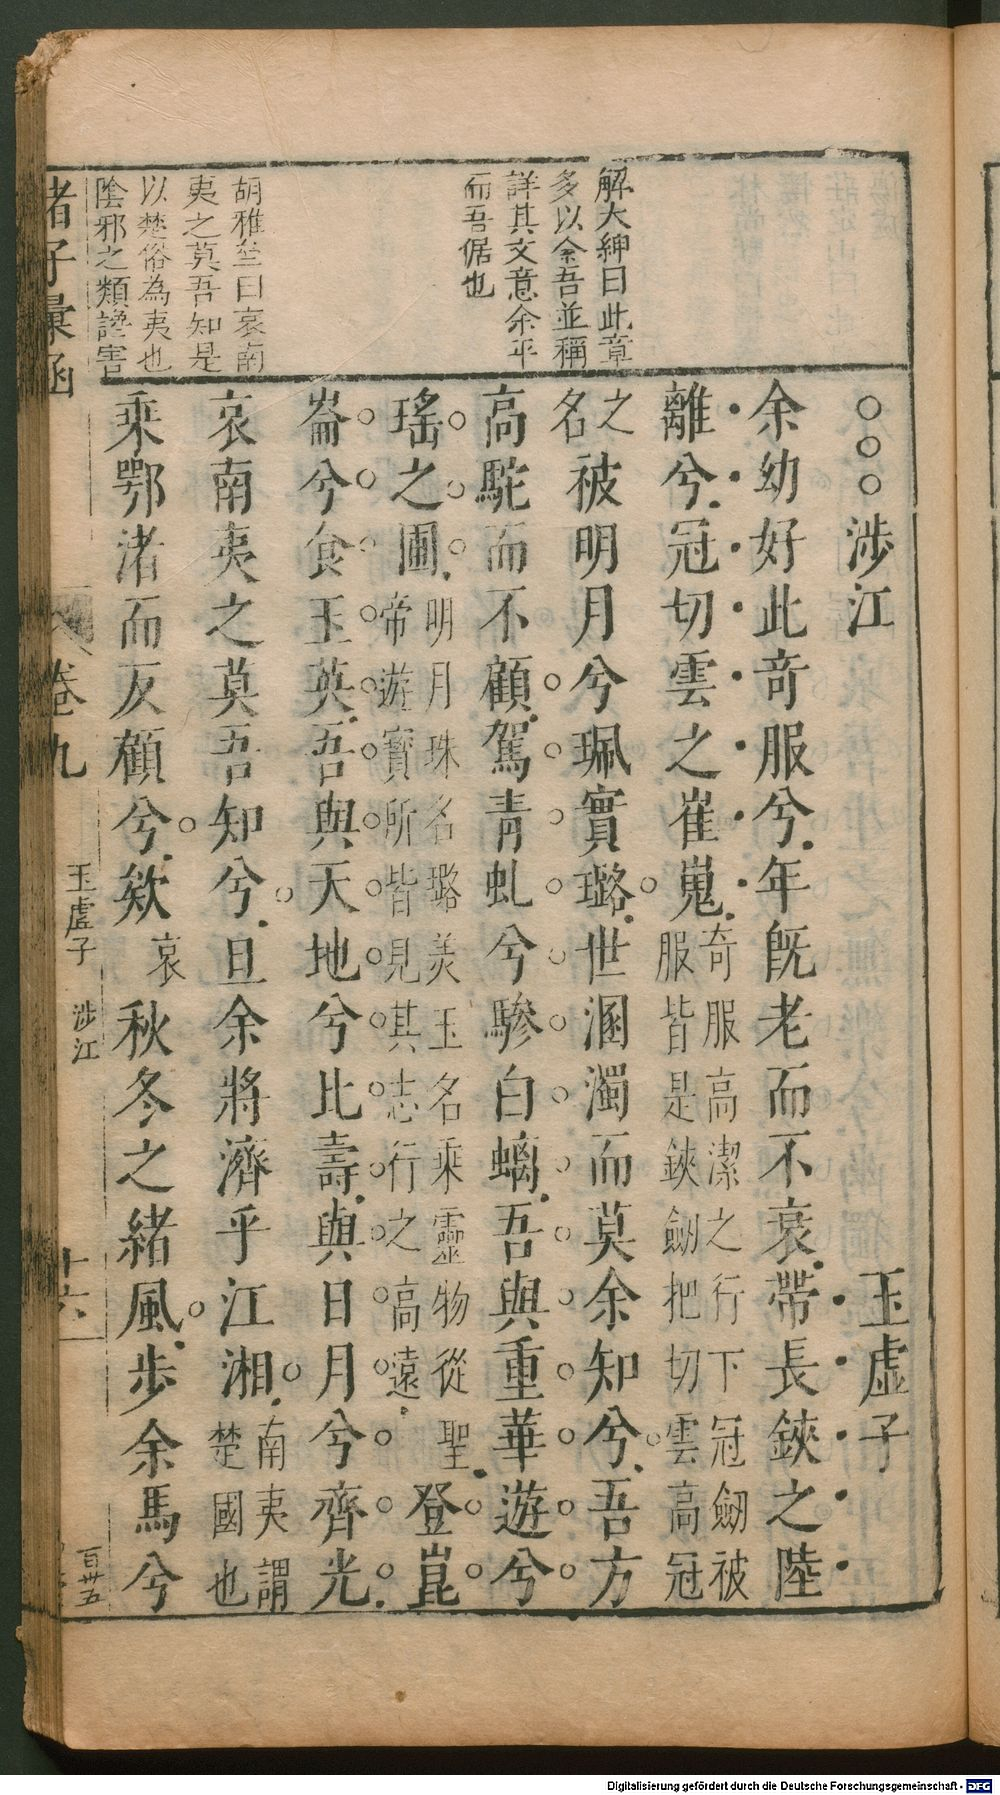 解大紳曰此章
多以余吾並稱
詳其文意余平
而吾倨也
胡雅堂曰哀南
夷之莫吾知是
以楚俗為夷也
陰邪之類讒害
○○○涉江 玉虛子
余幼好此奇服兮年旣老而不衰帶長鋏之陸
離兮冠切雲之崔嵬
奇服高潔之行下冠劒被
服皆是鋏劒把切雲高冠
之
名
被明月兮珮寶璐世溷濁而莫余知兮吾方
高駝而不顧駕青虬兮驂白螭吾與重華遊兮
瑤之圃
明月珠名璐美玉名乘靈物從聖
帝遊寶所皆見其志行之高遠
登崑
崙兮食玉英吾與天地兮比壽與日月兮齊光
哀南夷之莫吾知兮旦余將濟乎江湘
南夷謂
楚國也
乘鄂渚而反顧兮欸
哀
秋冬之緒風步余馬兮
諸子彙函
卷九
玉虛子 涉江
十六
百卅五
Digitalisierung gefördert durch die Deutsche Forschungsgemeinschaft - DFG